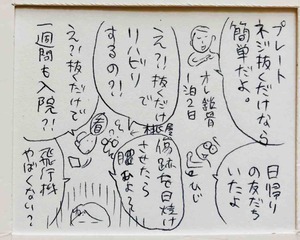 プレート
ネジ抜くだけなら
簡単だよ。
オレ鎖骨
1泊2日
え?!抜くだけで
リハビリ
するの?!
え?!抜くだけで
一週間も入院?!
日帰り
の友だち
いたよ
ひじ
傷跡を日焼け
させたら
飛行機
やばくない?